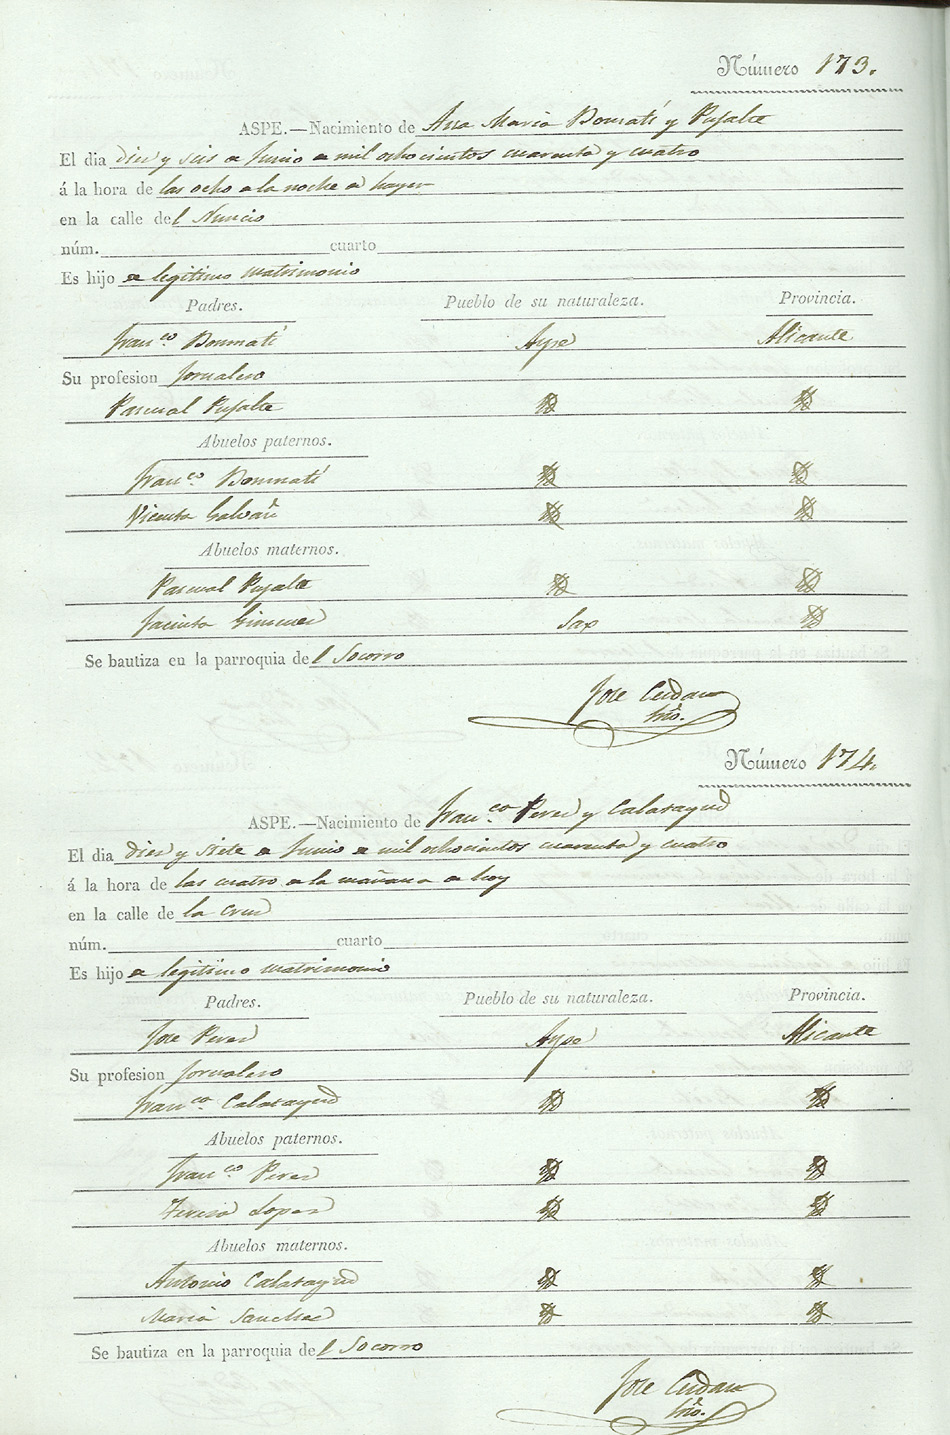 Número 173.
ASPE.—Nacimiento de Ana Maria Bonmatí y Pujalte
El dia diez y seis de Junio de mil ochocientos cuarenta y cuatro
á la hora de las ocho de la noche de hayer
en la calle del Nuncio
núm. cuarto
Es hijo de legitimo matrimonio
Padres. Pueblo de su naturaleza. Provincia.
Franco. Bonmatí Aspe Alicante
Su profesion Jornalero
Pascual Pujalte
Abuelos paternos.
Franco. Bonmatí
Vicenta Galvañ
Abuelos maternos.
Pascual Pujalte
Jacinta Gimenez Sax
Se bautiza en la parroquia del Socorro
Jose Cerdan
Número 174.
ASPE.—Nacimiento de Franco. Perez y Calatayud
El dia diez y siete de Junio de mil ochocientos cuarenta y cuatro
á la hora de las cuatro de la mañana de hoy
en la calle de la Cruz
núm. cuarto
Es hijo de legitimo matrimonio
Padres. Pueblo de su naturaleza. Provincia.
Jose Perez Aspe Alicante
Su profesion Jornalero
Franca. Calatayud
Abuelos paternos.
Franco. Perez
Teresa Lopez
Abuelos maternos.
Antonio Calatayud
Maria Sanchez
Se bautiza en la parroquia del Socorro
Jose Cerdan